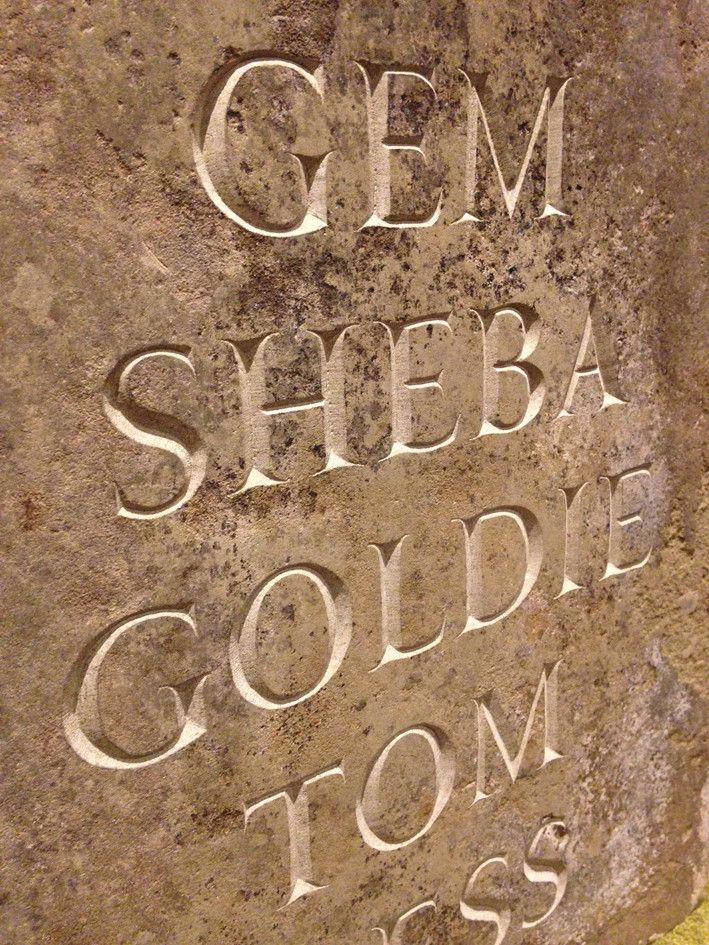 GEM
SHEBA
GOLDIE
TOM